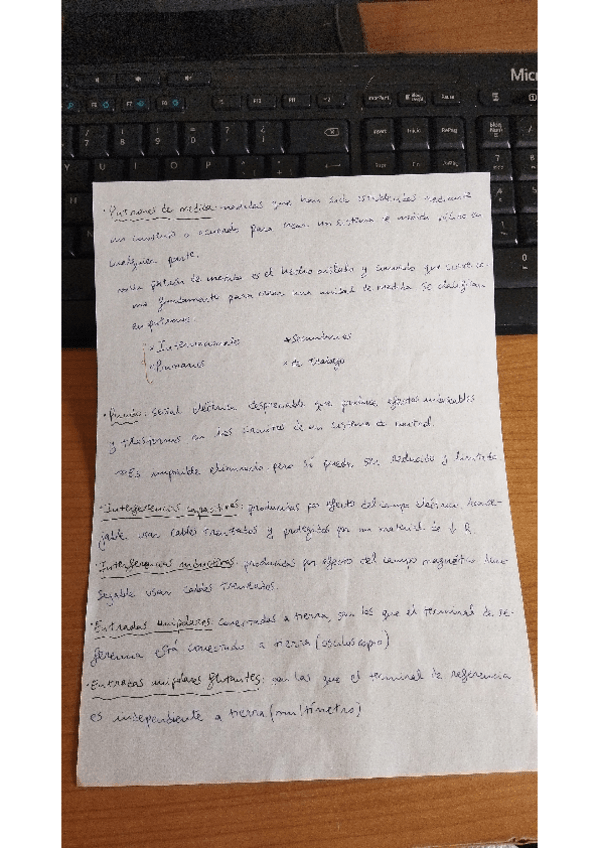 Mic
F10 F11
Inicio RePag
Y U I O P
· Patrones de medida: medidas que han sido establecidas mediante
un acuerdo para crear un sistema de medida válido en
cualquier parte.
patrón de medida es el hecho aislado y conocido que
para crear una unidad de medida. Se clasifican
en patrones:
* Internacionales * Secundarios
* Primarios * de Trabajo
· Ruido: señal eléctrica despreciable que produce efectos indeseables
y trastornos en los circuitos de un sistema de control.
Es imposible eliminarlo pero sí puede ser reducido y limitado
· Interferencias capacitivas: producidas por efecto del campo eléctrico. Aconse-
jable usar cables trenzados y protegidos por un material de ↓ R.
· Interferencias inductivas: producida por efecto del campo magnético. Acon
sejable usar cables trenzados.
· Entradas unipolares conectadas a tierra, son las que el terminal de re-
ferencia está conectado a tierra (osciloscopio)
· Entradas unipolares flotantes: son las que el terminal de referencia
es independiente a tierra (multímetro)